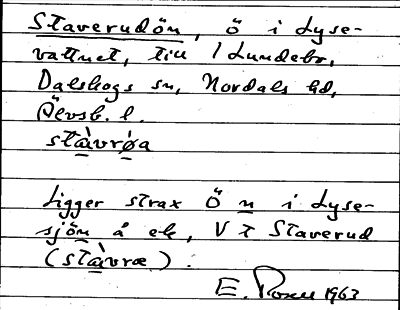 Staverudön, ö i Lyse-
vattnet, till 1 Lundebo,
Dalskogs sn, Nordals hd,
Älvsb. l.
stàvrøa
Ligger strax Ö n i Lyse-
sjön å ek, V t Staverud
(stàvræ).
E. 1963